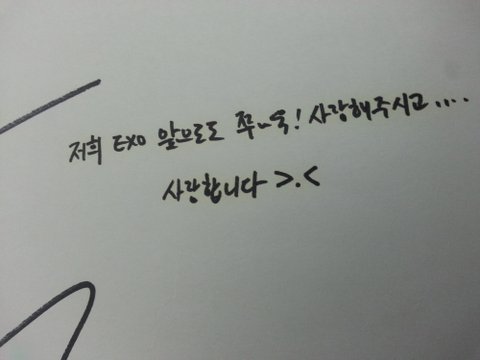 저희 EXO 앞으로도 쭈~욱! 사랑해주시고....
사랑합니다 >.<